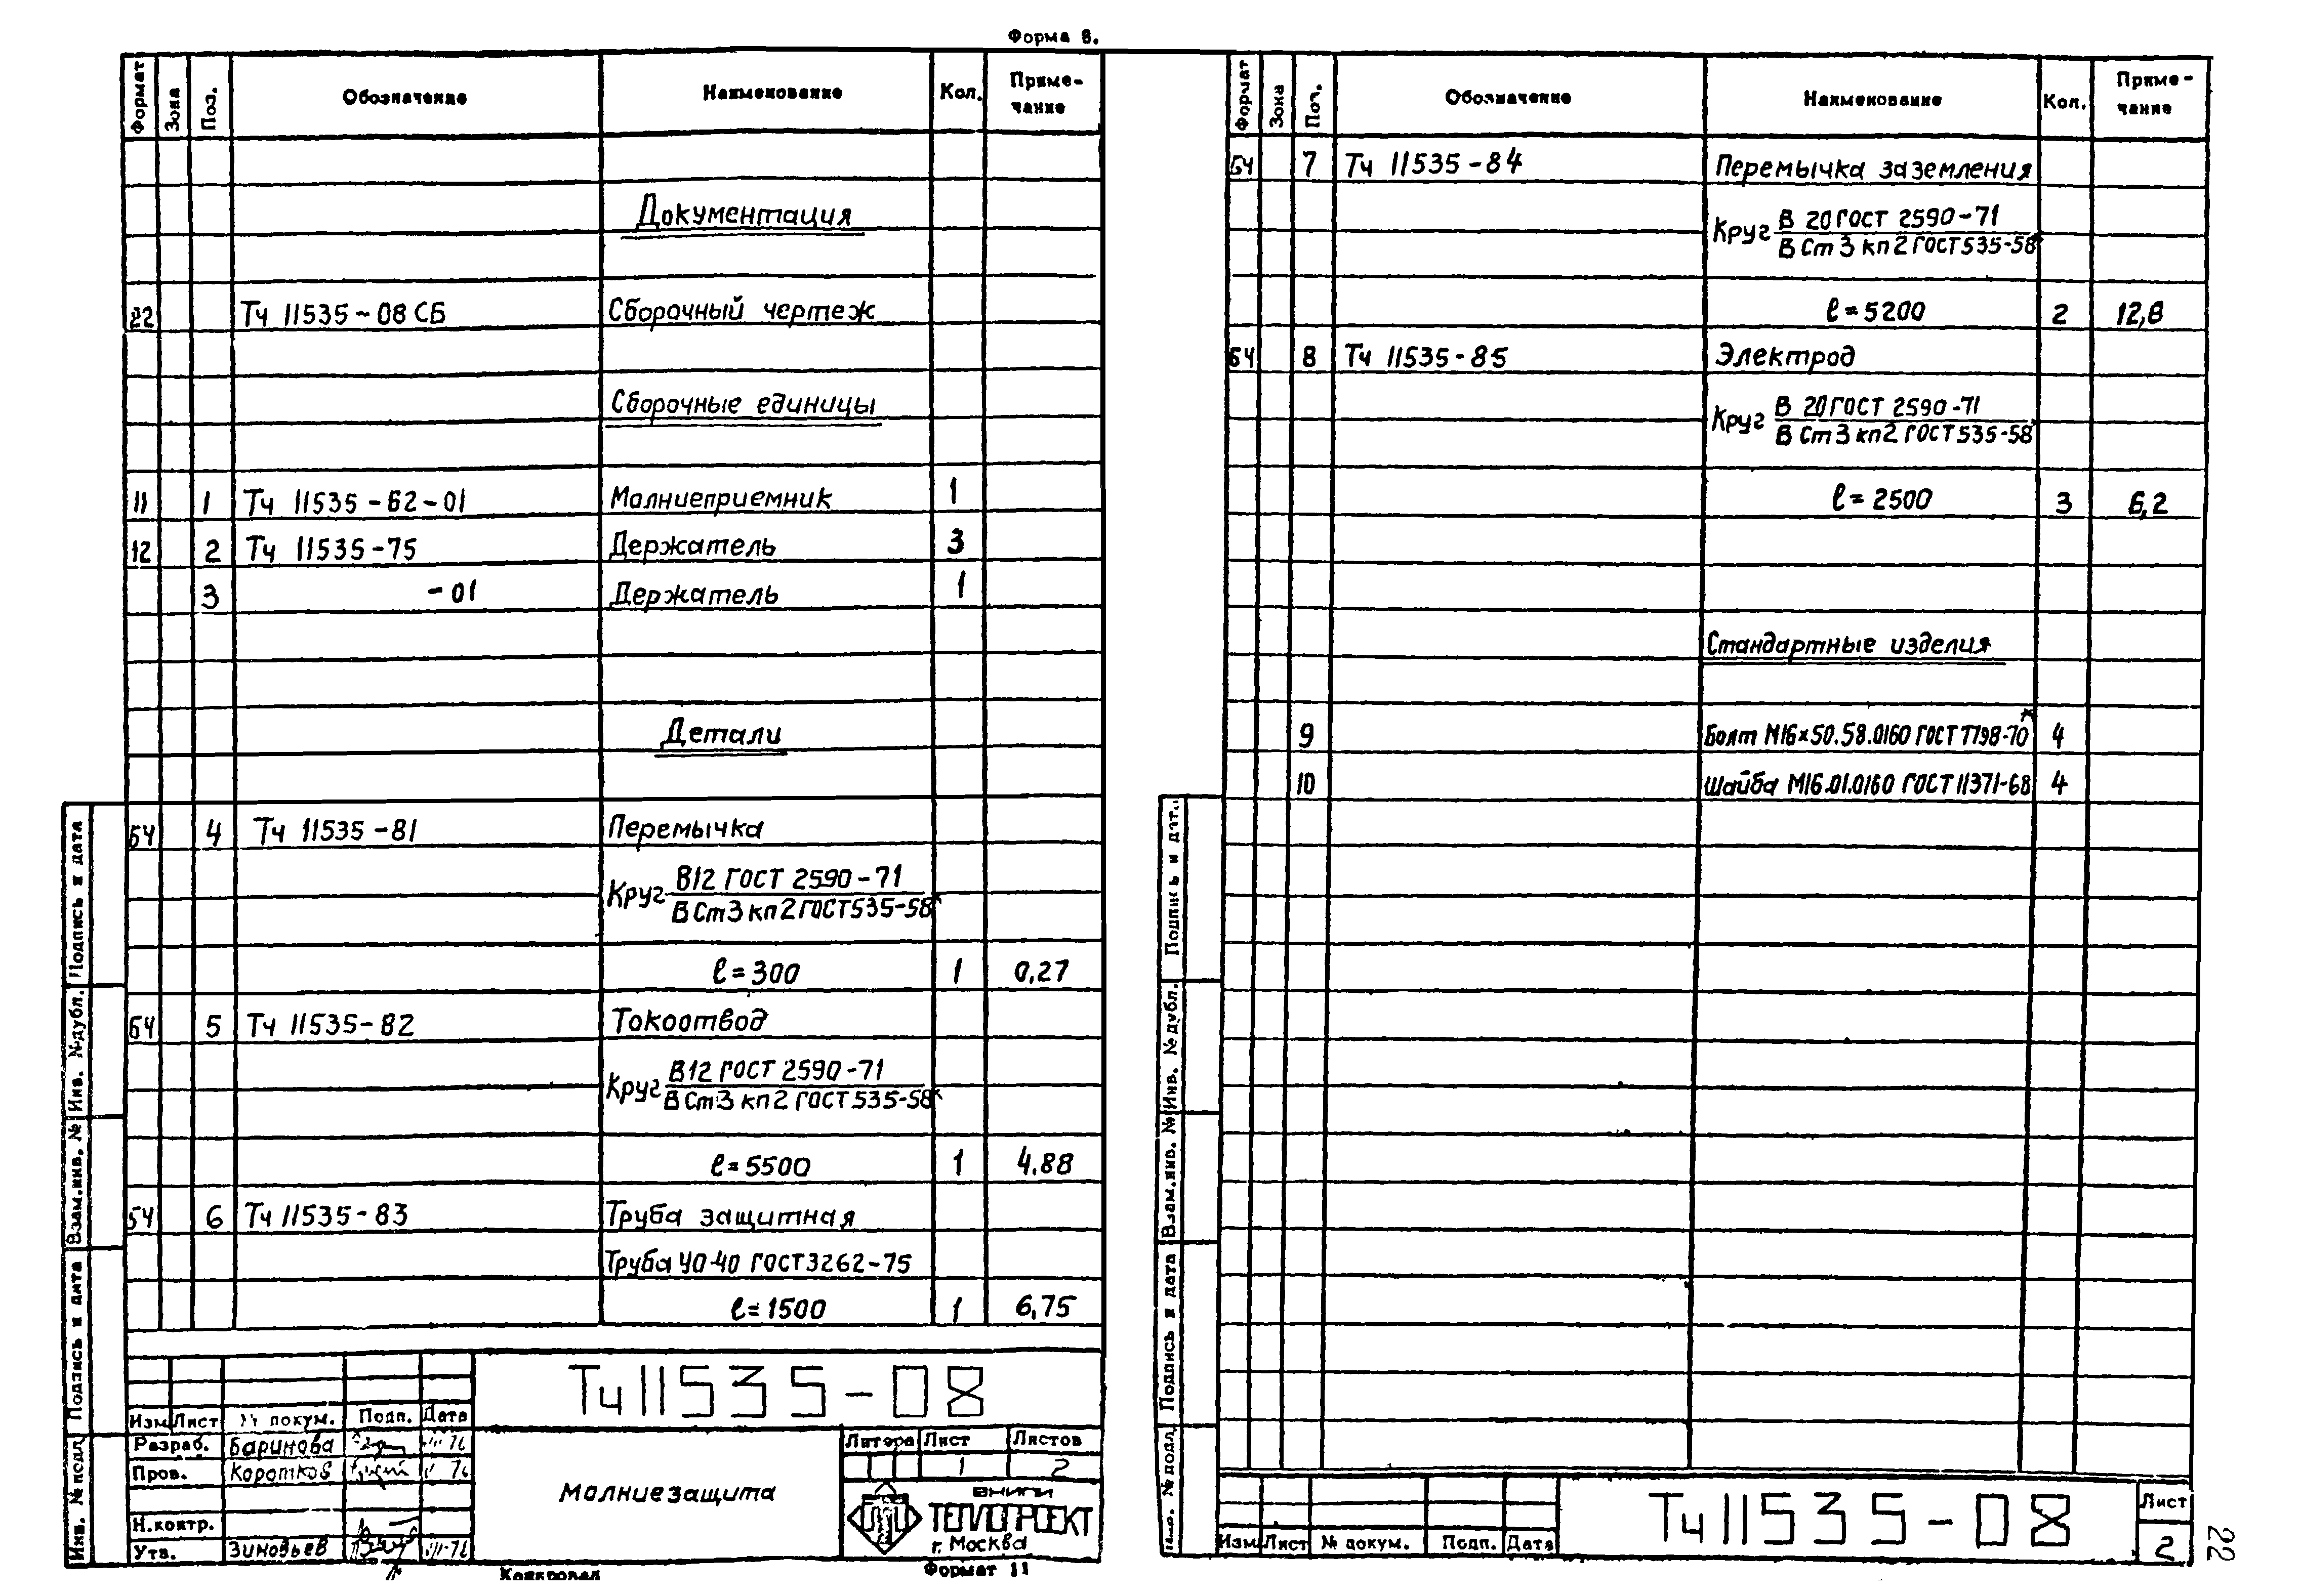 Форма 8.
Формат Зона Поз. Обозначение Наименование Кол. Приме-
чание
Документация
22 Тч 11535-08 СБ Сборочный чертеж
Сборочные единицы
11 1 Тч 11535-62-01 Молниеприемник 1
12 2 Тч 11535-75 Держатель 3
3 -01 Держатель 1
Детали
БЧ 4 Тч 11535-81 Перемычка
Круг В12 ГОСТ 2590-71
В Ст3 кп2 ГОСТ 535-58*
ℓ=300 1 0,27
БЧ 5 Тч 11535-82 Токоотвод
Круг В12 ГОСТ 2590-71
В Ст3 кп2 ГОСТ 535-58*
ℓ=5500 1 4.88
БЧ 6 Тч 11535-83 Труба защитная
Труба ЧО-40 ГОСТ 3262-75
ℓ=1500 1 6,75
Инв. № подл. Подпись и дата Взам.инв. № Инв. № дубл. Подпись и дата
Тч 11535-08
Изм Лист № докум. Подп. Дата
Разраб. Баринова
Пров. Коротков
Н.контр.
Утв. Зиновьев
Молниезащита
Литера Лист Листов
1 2
ВНИПИ
ТЕПЛОПРОЕКТ
г. Москва
Копировал Формат 11
Формат Зона Поз. Обозначение Наименование Кол. Приме-
чание
БЧ 7 Тч 11535-84 Перемычка заземления
Круг В 20 ГОСТ 2590-71
В Ст 3 кп 2 ГОСТ 535-58*
ℓ=5200 2 12,8
БЧ 8 Тч 11535-85 Электрод
Круг В 20 ГОСТ 2590-71
В Ст 3 кп2 ГОСТ 535-58*
ℓ=2500 3 6,2
Стандартные изделия
9 Болт М16×50.58.0160 ГОСТ 7798-70* 4
10 Шайба М16.01.0160 ГОСТ 11371-68 4
Инв. № подл. Подпись и дата Взам.инв. № Инв. № дубл. Подпись и дата
Изм Лист № докум. Подп. Дата
Тч 11535-08
Лист
2
22